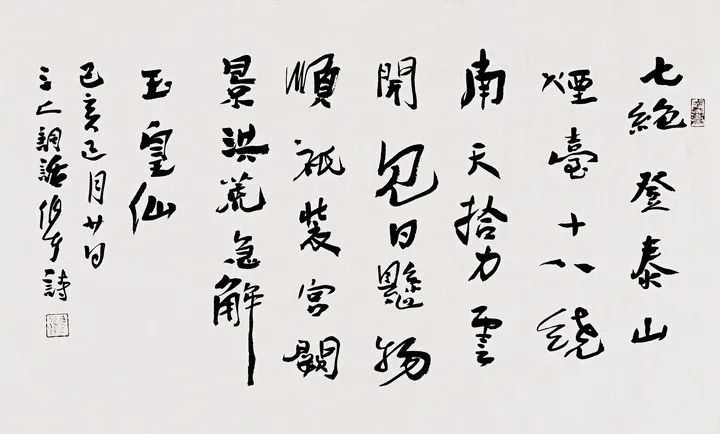 七絶登泰山
煙臺十八繞
南天拾力雲
開見日懸物
順祇裝宮闕
景洪荒急解
玉皇仙
己亥正月廿日
詩